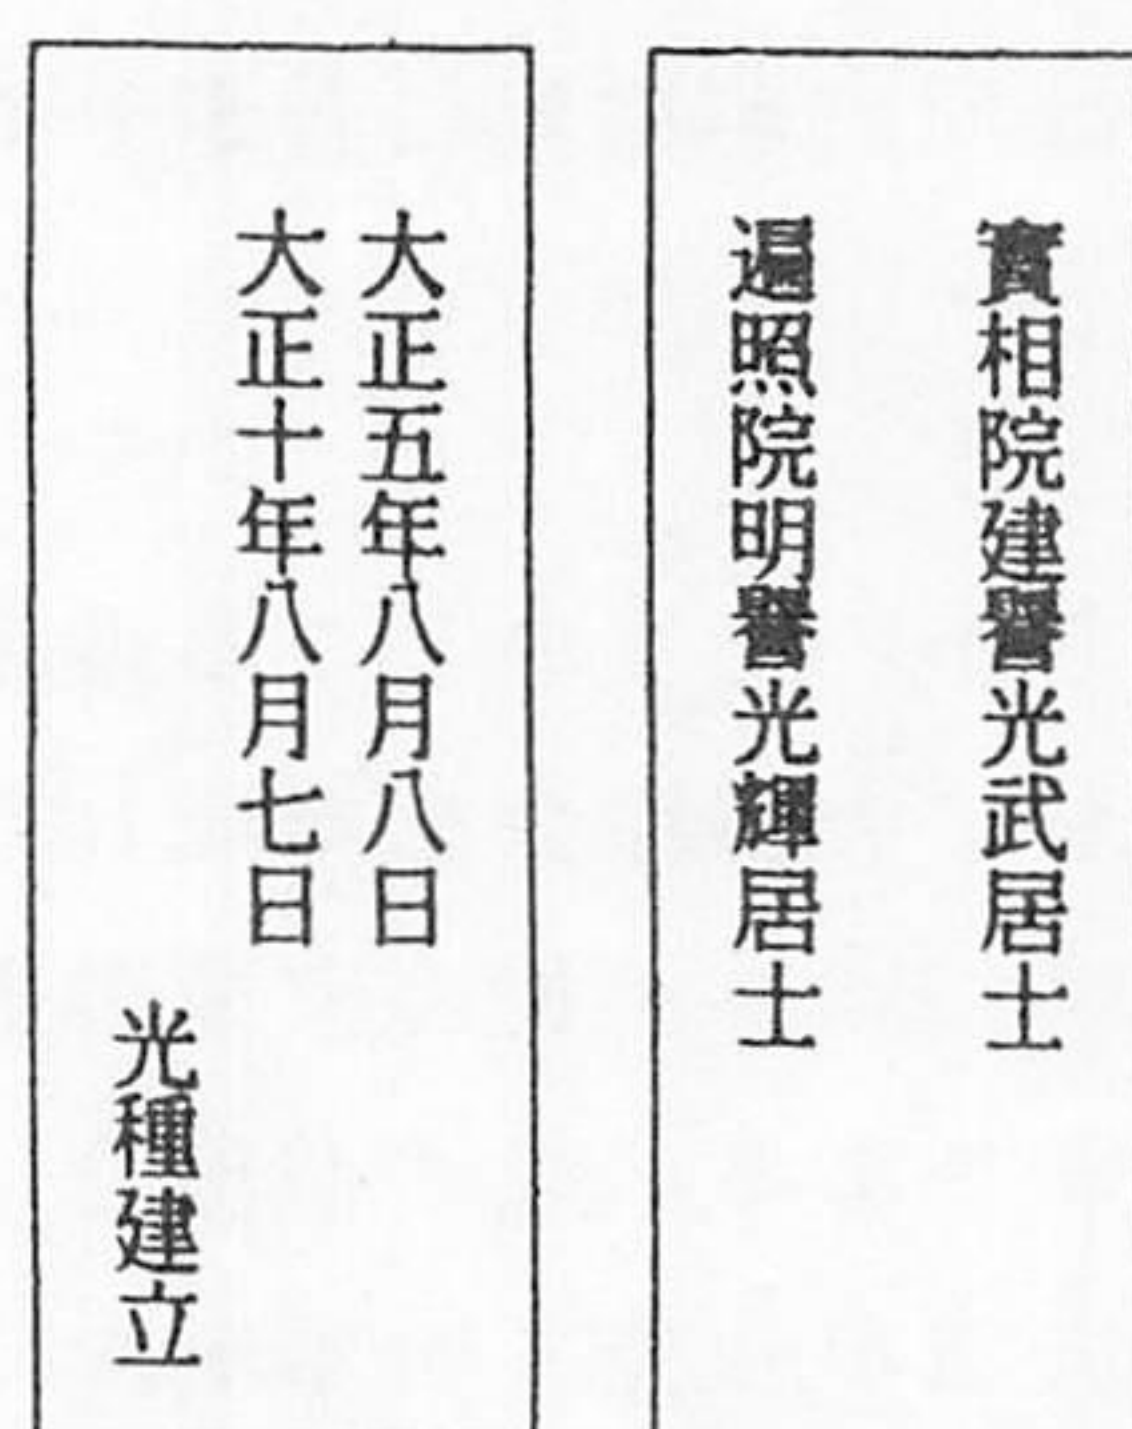 實相院建譽光武居士
遍照院明譽光輝居士
大正五年八月八日
大正十年八月七日
光種建立